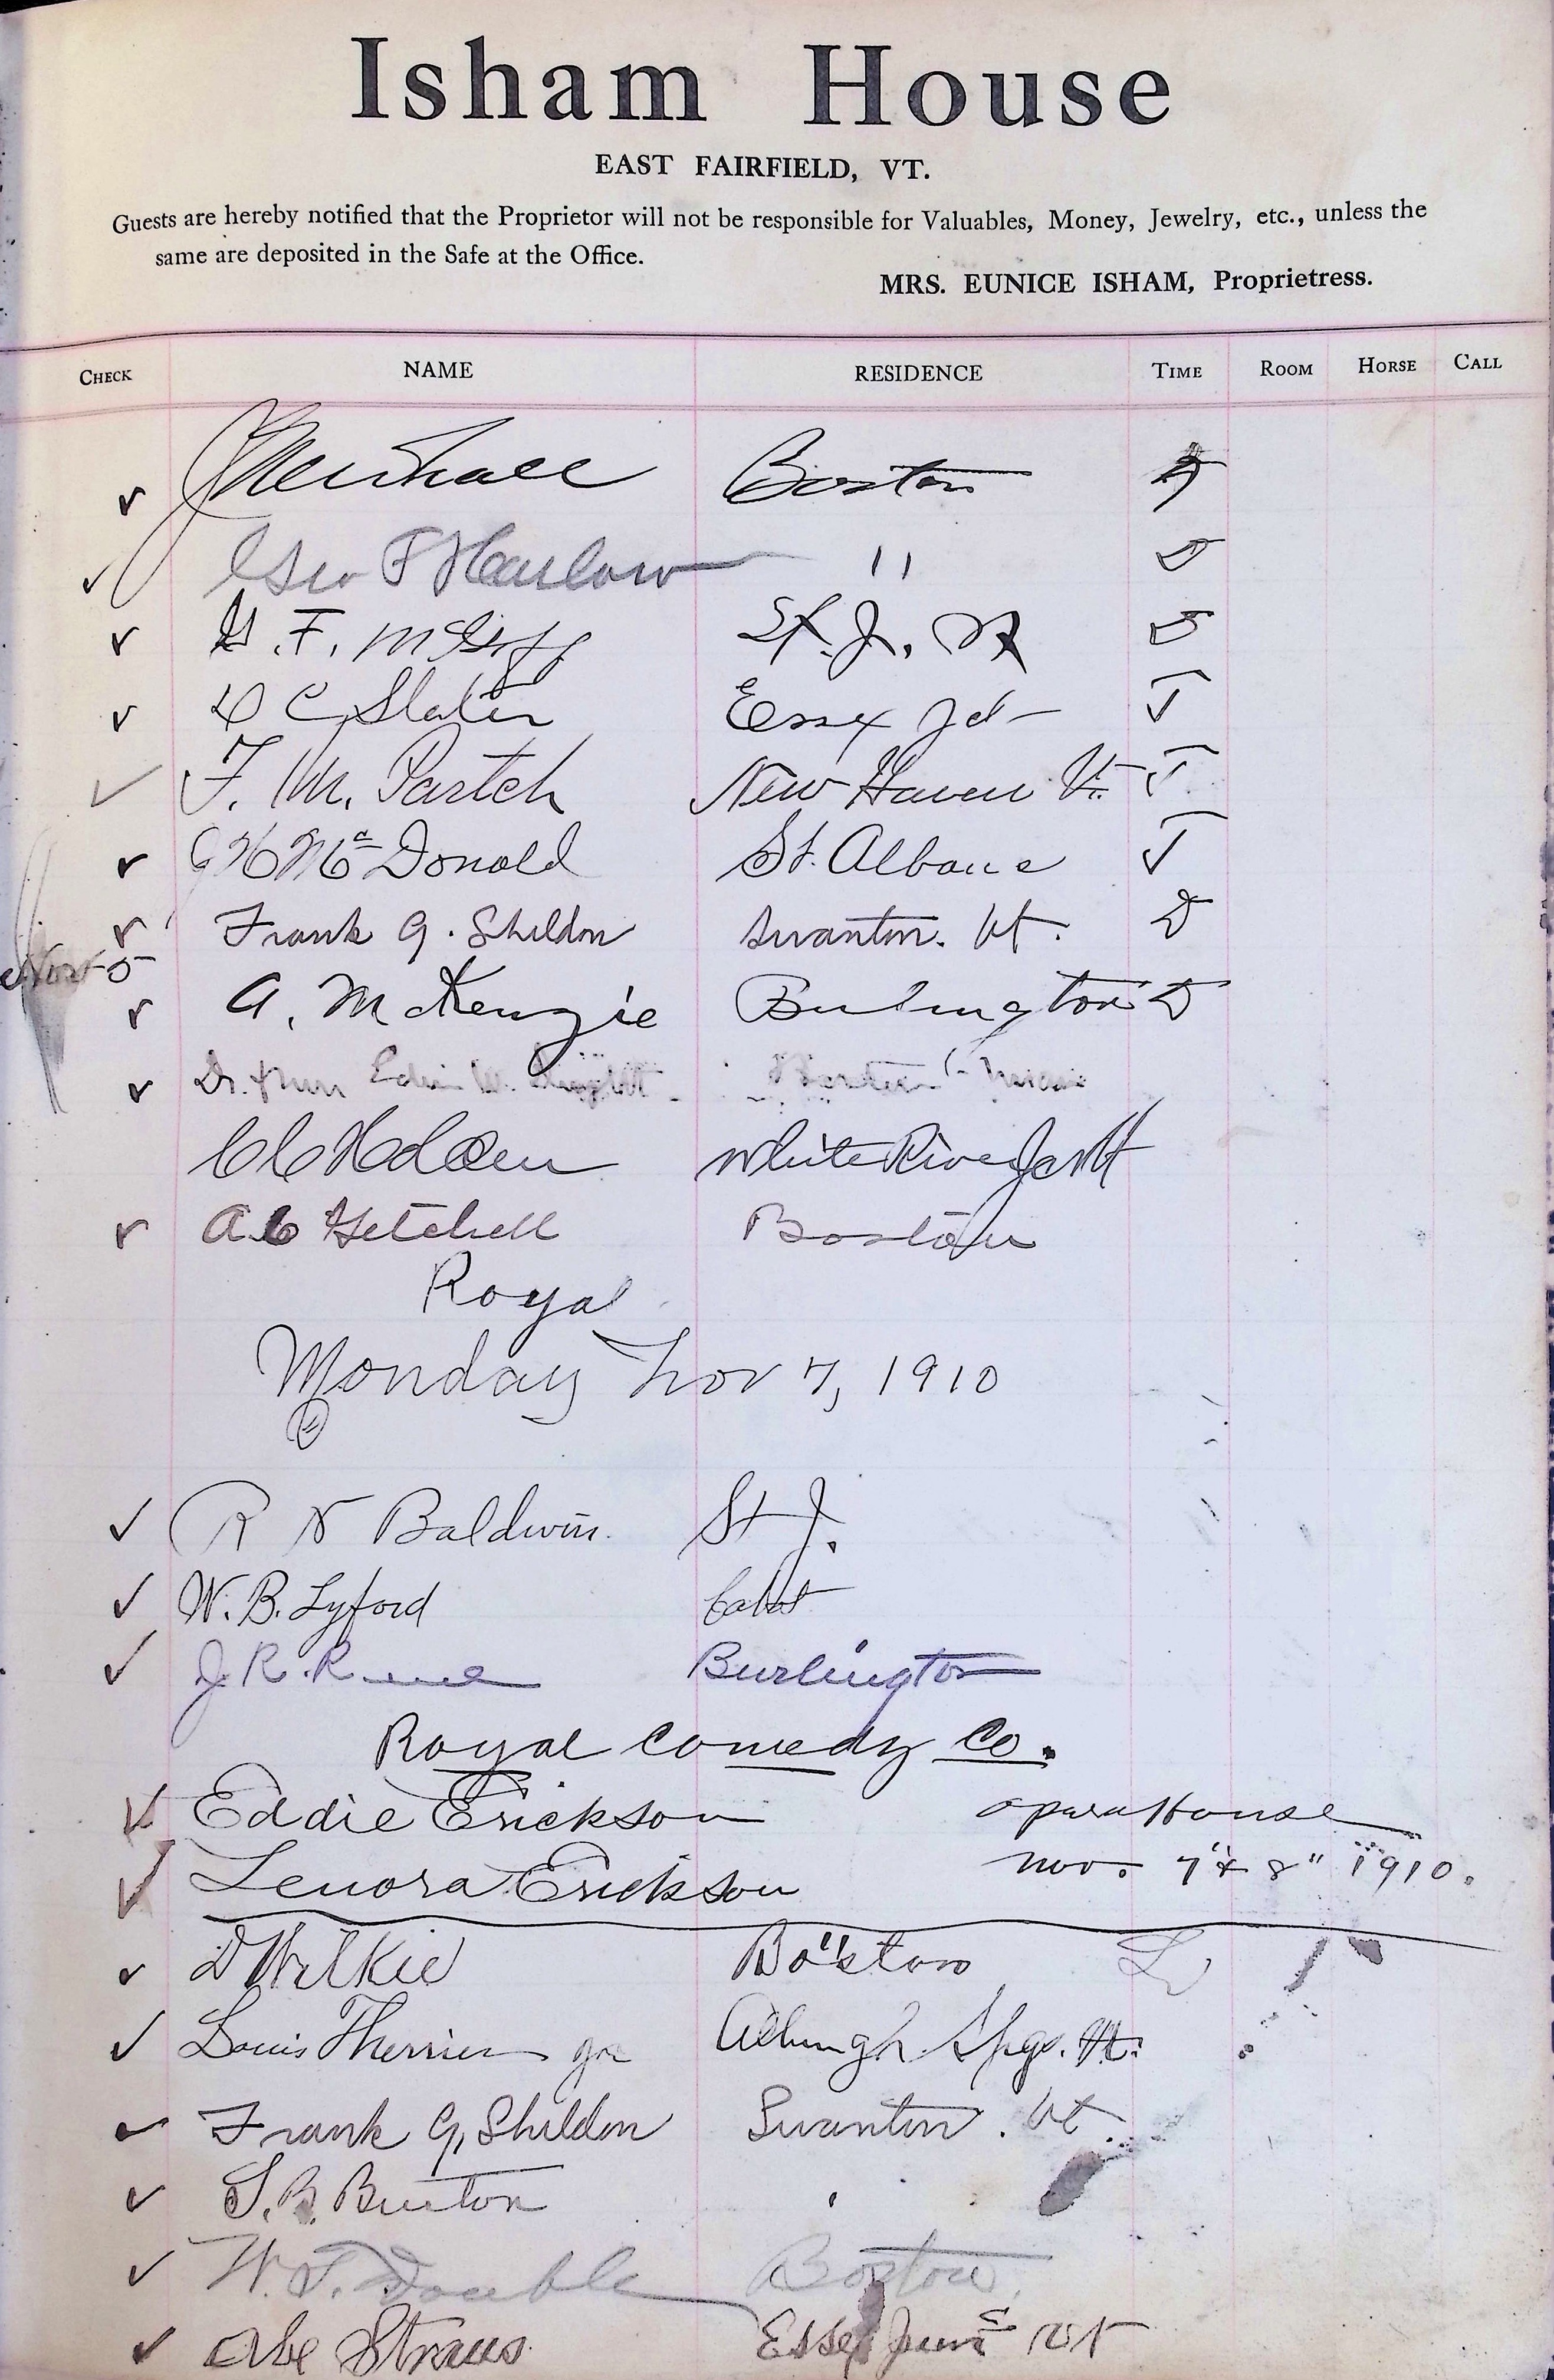 Isham House
EAST FAIRFIELD, VT.
Guests are hereby notified that the Proprietor will not be responsible for Valuables, Money, Jewelry, etc., unless the
same are deposited in the Safe at the Office.
MRS. EUNICE ISHAM, Proprietress.
CHECK NAME RESIDENCE TIME ROOM HORSE CALL
Boston
Geo F Harlow " D
St. J. Vt D
D C Slater Essex Jct T
F. M. Partch New Haven Vt. T
McDonald St. Albans T
Frank G. Sheldon Swanton. Vt. D
Nov 5
A. McKenzie Burlington D
Dr. Edwin W.
White River Jc Vt
A C Getchell Boston
Royal
Monday Nov 7, 1910
R N Baldwin. St J.
W. B. Lyford Cabot
J. R. Burlington
Royal Comedy Co.
Eddie Erickson opera House
Lenora Erickson Nov. 7" & 8" 1910.
D Wilkie Boston
Louis Therrien Jr Alburgh Spgs. Vt.
Frank G. Sheldon Swanton. Vt.
S. B. Burton "
W. F. Double Boston
Abe Straus Essex Junc Vt